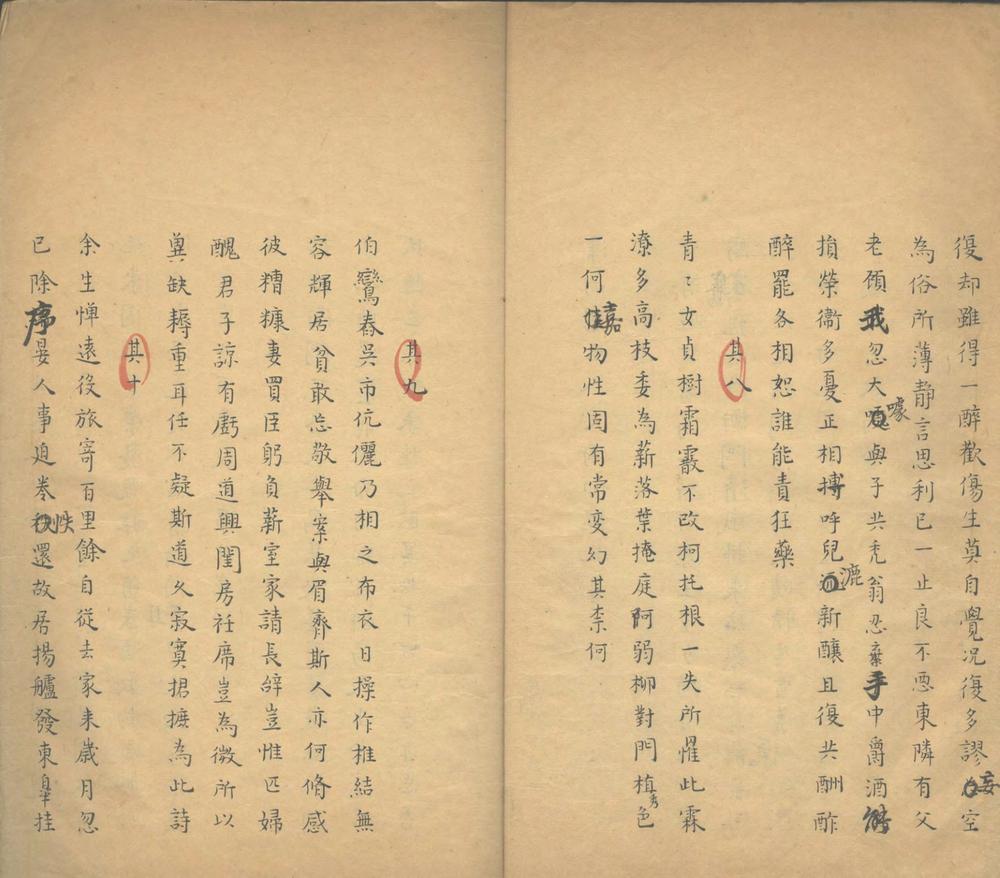 復却雖得一醉歡傷生莫自覺况復多謬妄空
為俗所薄静言思利已一止良不惡東隣有父
老顧我忽大噱與子共禿翁忍棄手中爵酒能
損榮衞多憂正相搏呼兒漉新釀且復共酬酢
醉罷各相恕誰能責狂藥
其八
青〻女貞樹霜霰不改柯托根一失所罹此霖
潦多高枝委為薪落葉掩庭阿弱柳對門植秀色
一何嘉物性固有常变幻其柰何
其九
伯鸞舂吳市伉儷乃相之布衣日操作椎結無
容輝居貧敢忘敬舉案與眉齊斯人亦何脩感
彼糟糠妻買臣躬負薪室家請長辝豈惟匹婦
醜君子諒有虧周道興閨房衽席豈為微所以
兾缺耨重耳任不疑斯道久寂寞捃摭為此詩
其十
余生憚遠役旅寄百里餘自從去家来歲月忽
已除序晏人事迫卷帙還故居揚艫發東臯挂